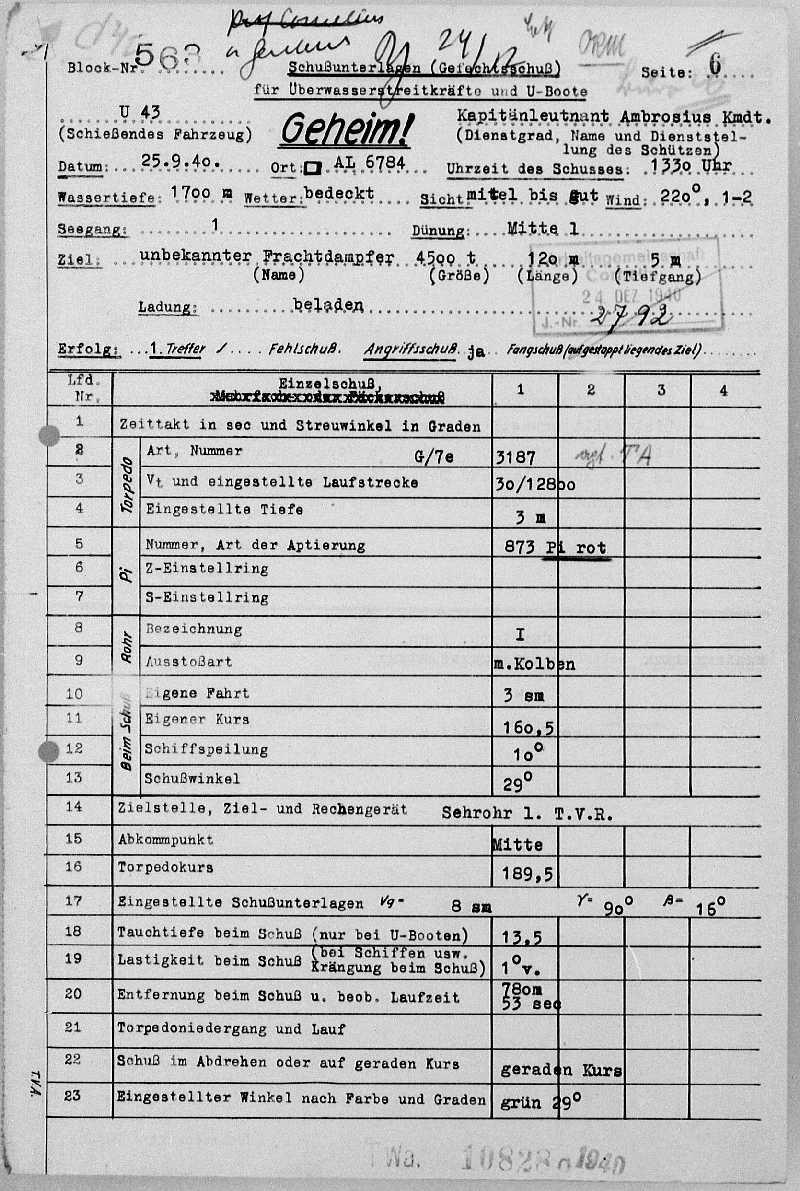 Prof Cornelius
24/12
ORM
Block-Nr. 563
Schußunterlagen (Gefechtsschuß)
Seite: 6
für Überwasserstreitkräfte und U-Boote
U 43
Geheim!
Kapitänleutnant Ambrosius Kmdt.
(Schießendes Fahrzeug)
(Dienstgrad, Name und Dienststel-
lung des Schützen)
Datum: 25.9.40. Ort: AL 6784 Uhrzeit des Schusses: 1330 Uhr
Wassertiefe: 1700 m Wetter: bedeckt Sicht mittel bis gut Wind: 220°, 1-2
Seegang: 1 Dünung: Mitte 1
Ziel: unbekannter Frachtdampfer 4500 t 120 m 5 m
(Name) (Größe) (Länge) (Tiefgang)
24 DEZ 1940
Ladung: beladen
J.-Nr. 2792
Erfolg: 1. Treffer / Fehlschuß. Angriffsschuß ja Fangschuß (auf gestoppt liegendes Ziel)
Lfd. Nr. Einzelschuß, Mehrfach- oder Fächerschuß 1 2 3 4
1 Zeittakt in sec und Streuwinkel in Graden
Torpedo
2 Art, Nummer G/7e 3187 TA
3 Vt und eingestellte Laufstrecke 30/12800
4 Eingestellte Tiefe 3 m
Pi
5 Nummer, Art der Aptierung 873 Pi rot
6 Z-Einstellring
7 S-Einstellring
Rohr
8 Bezeichnung I
9 Ausstoßart m.Kolben
Beim Schuß
10 Eigene Fahrt 3 sm
11 Eigener Kurs 160,5
12 Schiffspeilung 10°
13 Schußwinkel 29°
14 Zielstelle, Ziel- und Rechengerät Sehrohr l. T.V.R.
15 Abkommpunkt Mitte
16 Torpedokurs 189,5
17 Eingestellte Schußunterlagen Vg- 8 sm γ= 90° β= 16°
18 Tauchtiefe beim Schuß (nur bei U-Booten) 13,5
19 Lastigkeit beim Schuß (bei Schiffen usw. Krängung beim Schuß) 1° v.
20 Entfernung beim Schuß u. beob. Laufzeit 780m 53 sec
21 Torpedoniedergang und Lauf
22 Schuß im Abdrehen oder auf geraden Kurs geraden Kurs
23 Eingestellter Winkel nach Farbe und Graden grün 29°
T.V.A.
TWa. 10828 1940